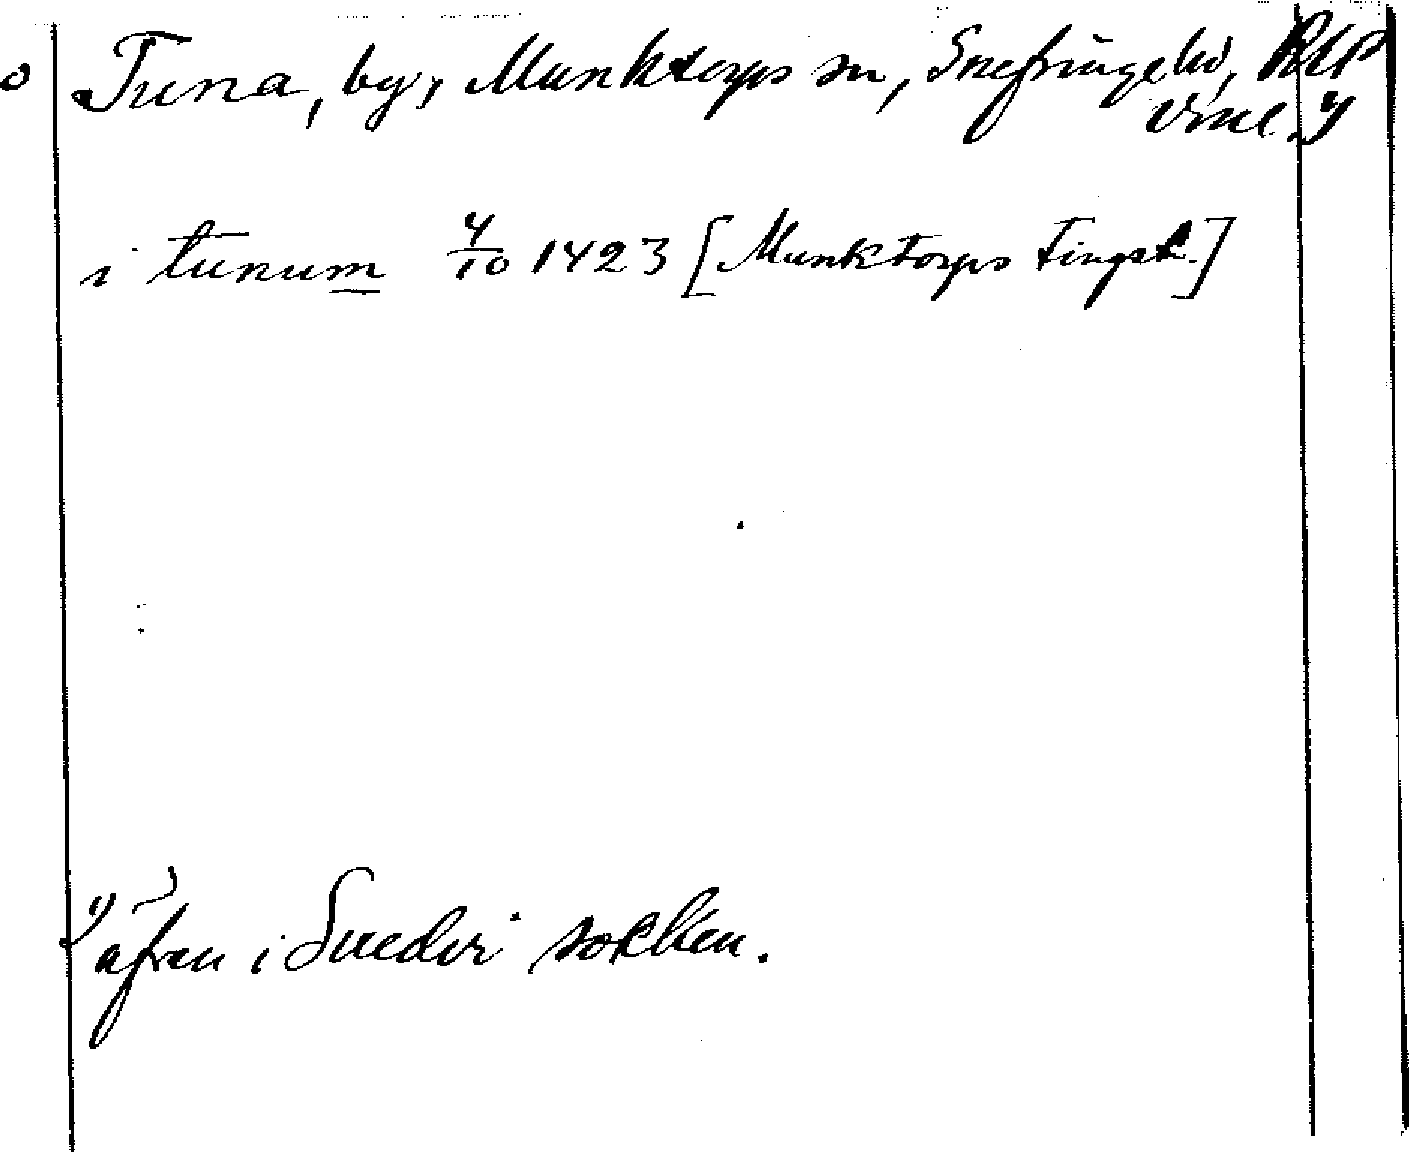 o Tuna, by, Munktorps sn, Snefringe hd, RAP
Vml. 1)
i tunum 4/10 1423 [Munktorps tingst.]
1) äfven i Svedvi socken.